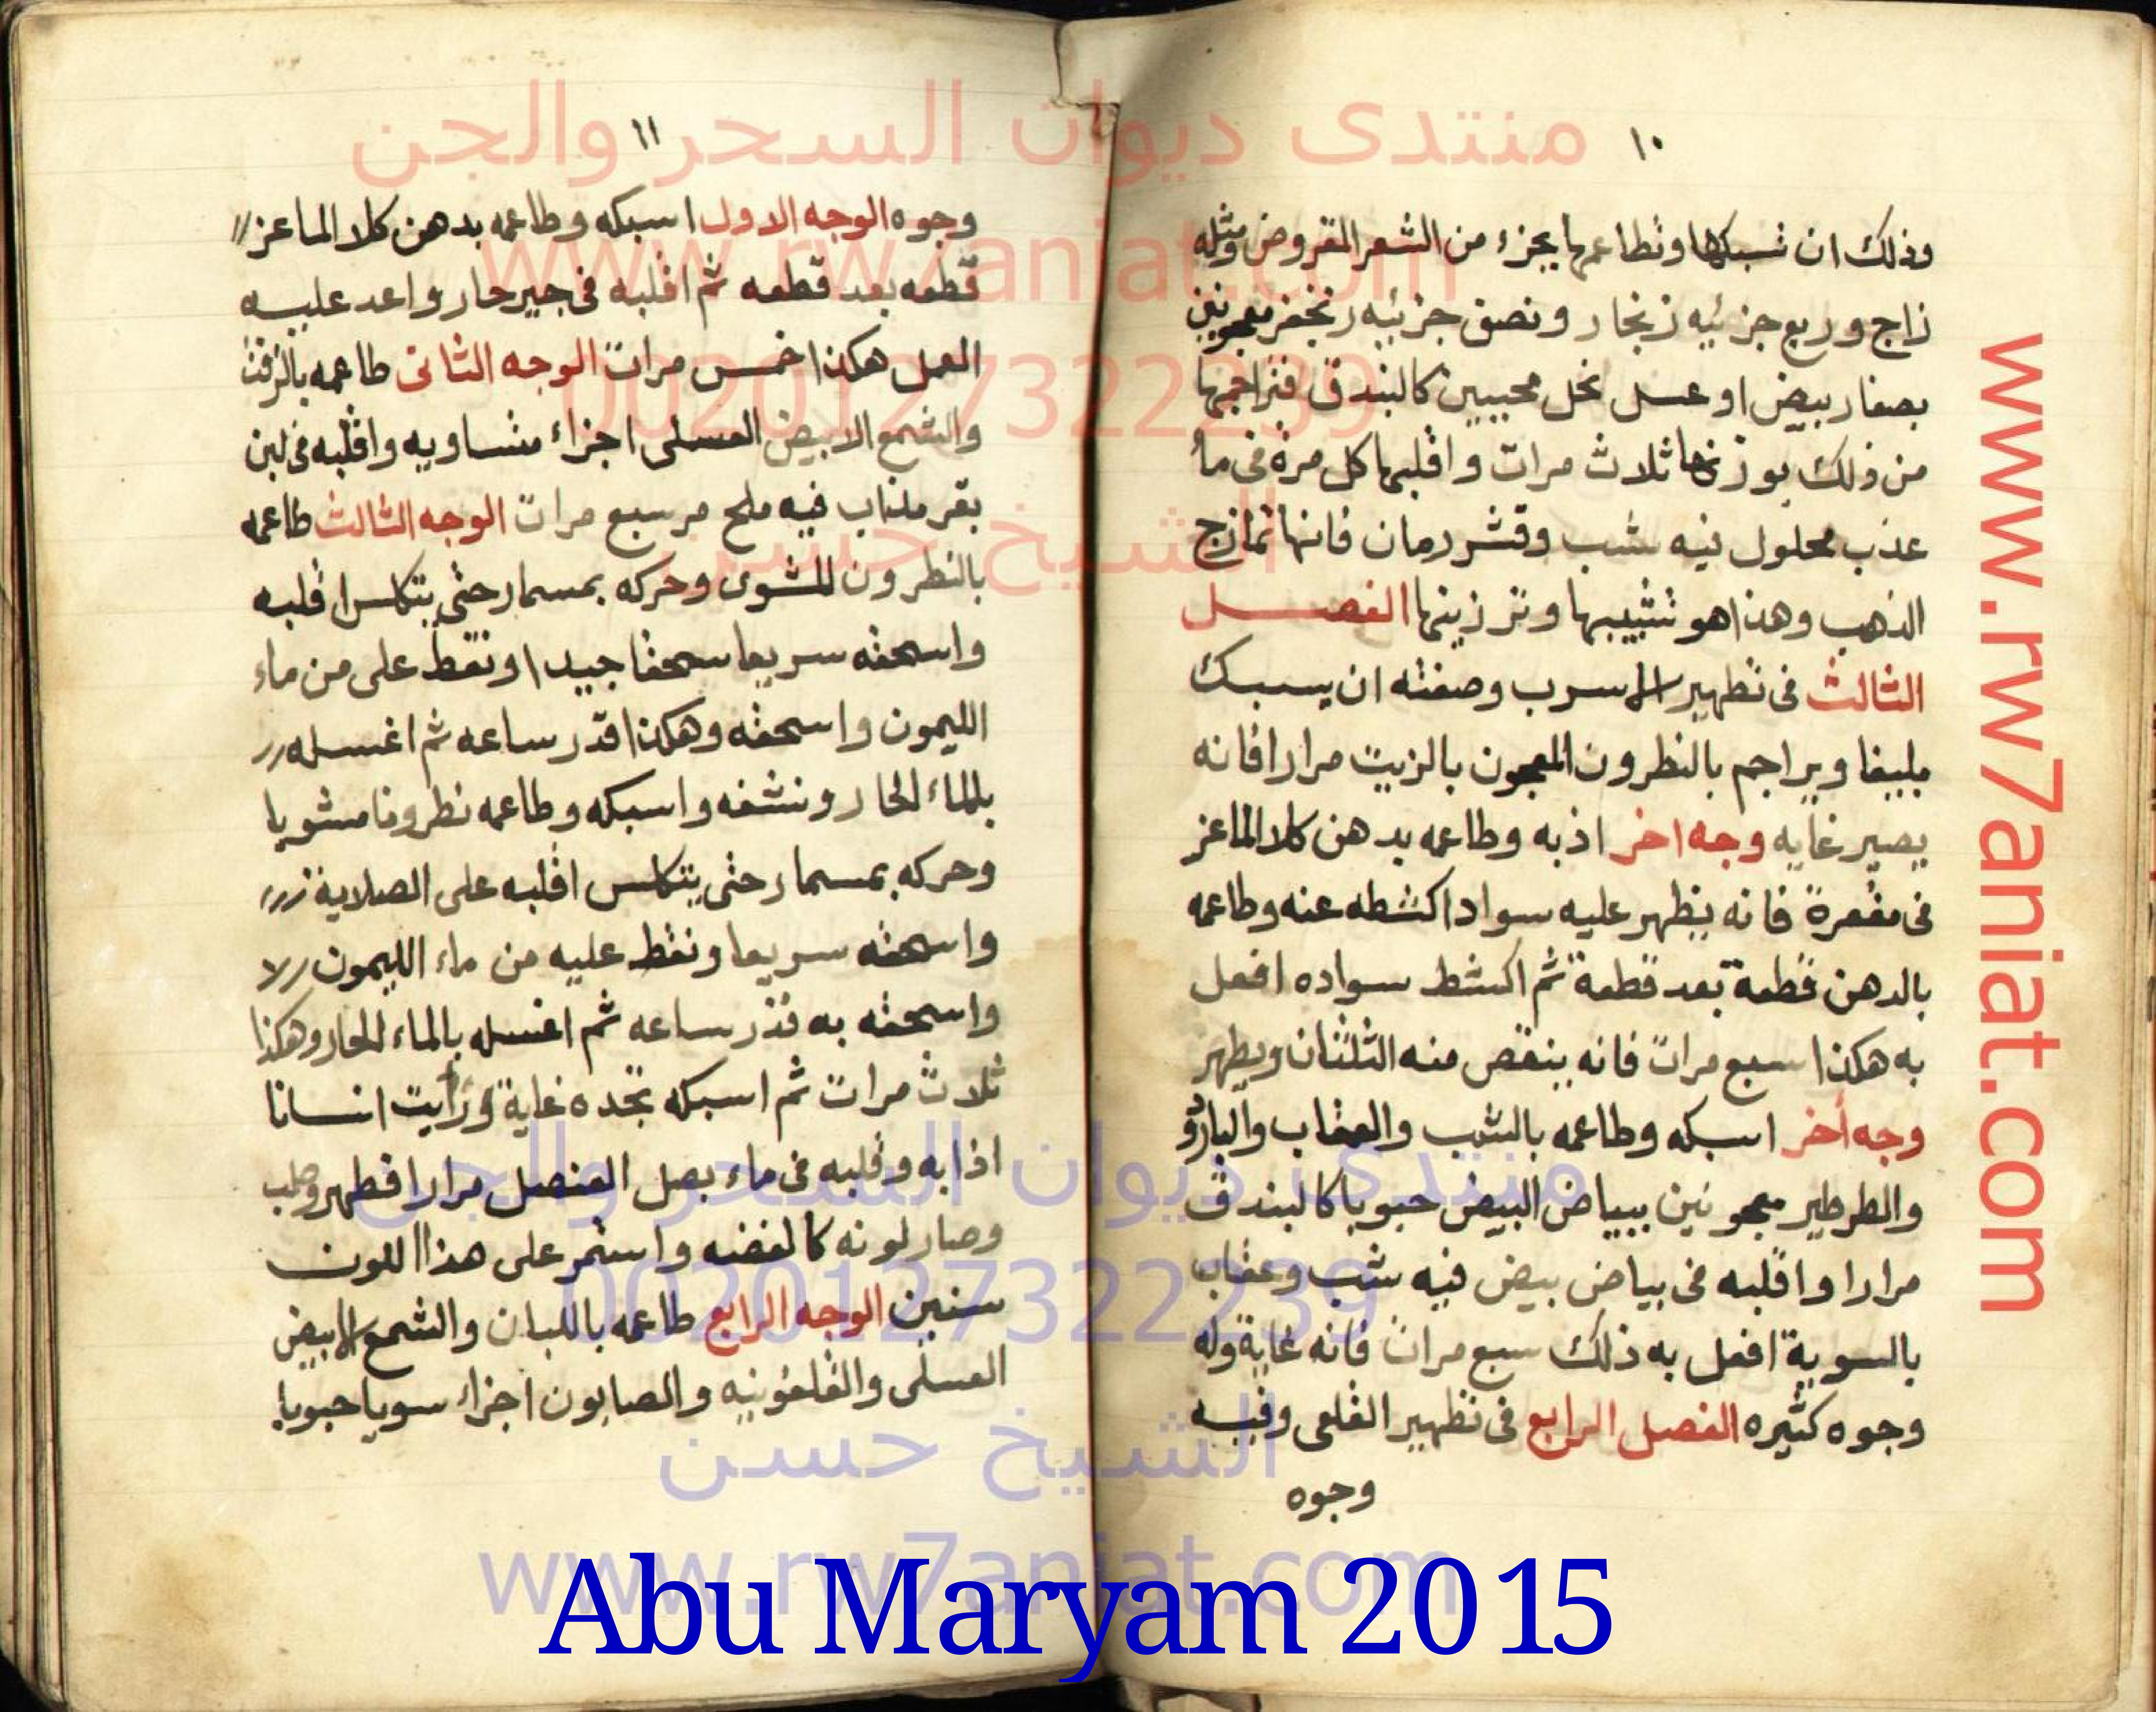 ١٠
وذلك ان تسبكها وتطاعمها بجزء من الشعر المقروض ومثله
زاج وربع جزئيه زنجار ونصف جزئيه زنجفر معجونين
بصفار بيض او عسل نحل محببين كالبندق فتراجمها
من ذلك بوزنها ثلاث مرات واقلبها كل مرة فى ماء
عذب محلول فيه شب وقشر رمان فانها تمازج
الذهب وهذا هو تشبيبها وترزينها الفصل
الثالث فى تطهير الاسرب وصفته ان يسبك
بليغا ويراجم بالنطرون المعجون بالزيت مرارا فانه
يصير غايه وجه اخر اذبه وطاعمه بدهن كلا الماعز
فى مقعرة فانه يظهر عليه سوادا كشطه عنه وطاعمه
بالدهن قطعة بعد قطعة ثم اكشط سواده افعل
به هكذا سبع مرات فانه ينقص منه الثلثان ويطهر
وجه أخر اسبكه وطاعمه بالشب والعقاب والبارود
والطرطير معجونين ببياض البيض حبوبا كالبندق
مرارا واقلبه فى بياض بيض فيه شب وعقاب
بالسوية افعل به ذلك سبع مرات فانه غاية وله
وجوه كثيره الفصل الرابع فى تطهير القلعى وفيه
وجوه
١١
وجوه الوجه الاول اسبكه وطاعمه بدهن كلا الماعز
قطعه بعد قطعه ثم اقلبه فى جير حار واعد عليه
العمل هكذا خمس مرات الوجه الثانى طاعمه بالزفت
والشمع الابيض العسلى اجزاء متساويه واقلبه فى لبن
بقر مذاب فيه ملح مر سبع مرات الوجه الثالث طاعمه
بالنطرون المشوى وحركه بمسمار حتى يتكلس اقلبه
واسحقه سريعا سحقا جيدا ونقط على من ماء
الليمون واسحقه وهكذا قدر ساعه ثم اغسله
بالماء الحار ونشفه واسبكه وطاعمه نطرونا مشويا
وحركه بمسمار حتى يتكلس اقلبه على الصلاية
واسحقه سريعا ونقط عليه من ماء الليمون
واسحقه به قدر ساعه ثم اغسله بالماء الحار وهكذا
ثلاث مرات ثم اسبكه تجده غاية ورأيت انسانا
اذابه وقلبه فى ماء بصل العنصل مرارا فطهر وصلب
وصار لونه كالفضه واستمر على هذا اللون
سنين الوجه الرابع طاعمه باللبان والشمع الابيض
العسلى والقلفونيه والصابون اجزاء سويا حبوبا
منتدى ديوان السحر والجن
www.rw7aniat.com
0020127322239
الشيخ حسن
منتدى ديوان السحر والجن
0020127322239
الشيخ حسن
www.rw7aniat.com
www.rw7aniat.com
Abu Maryam 2015